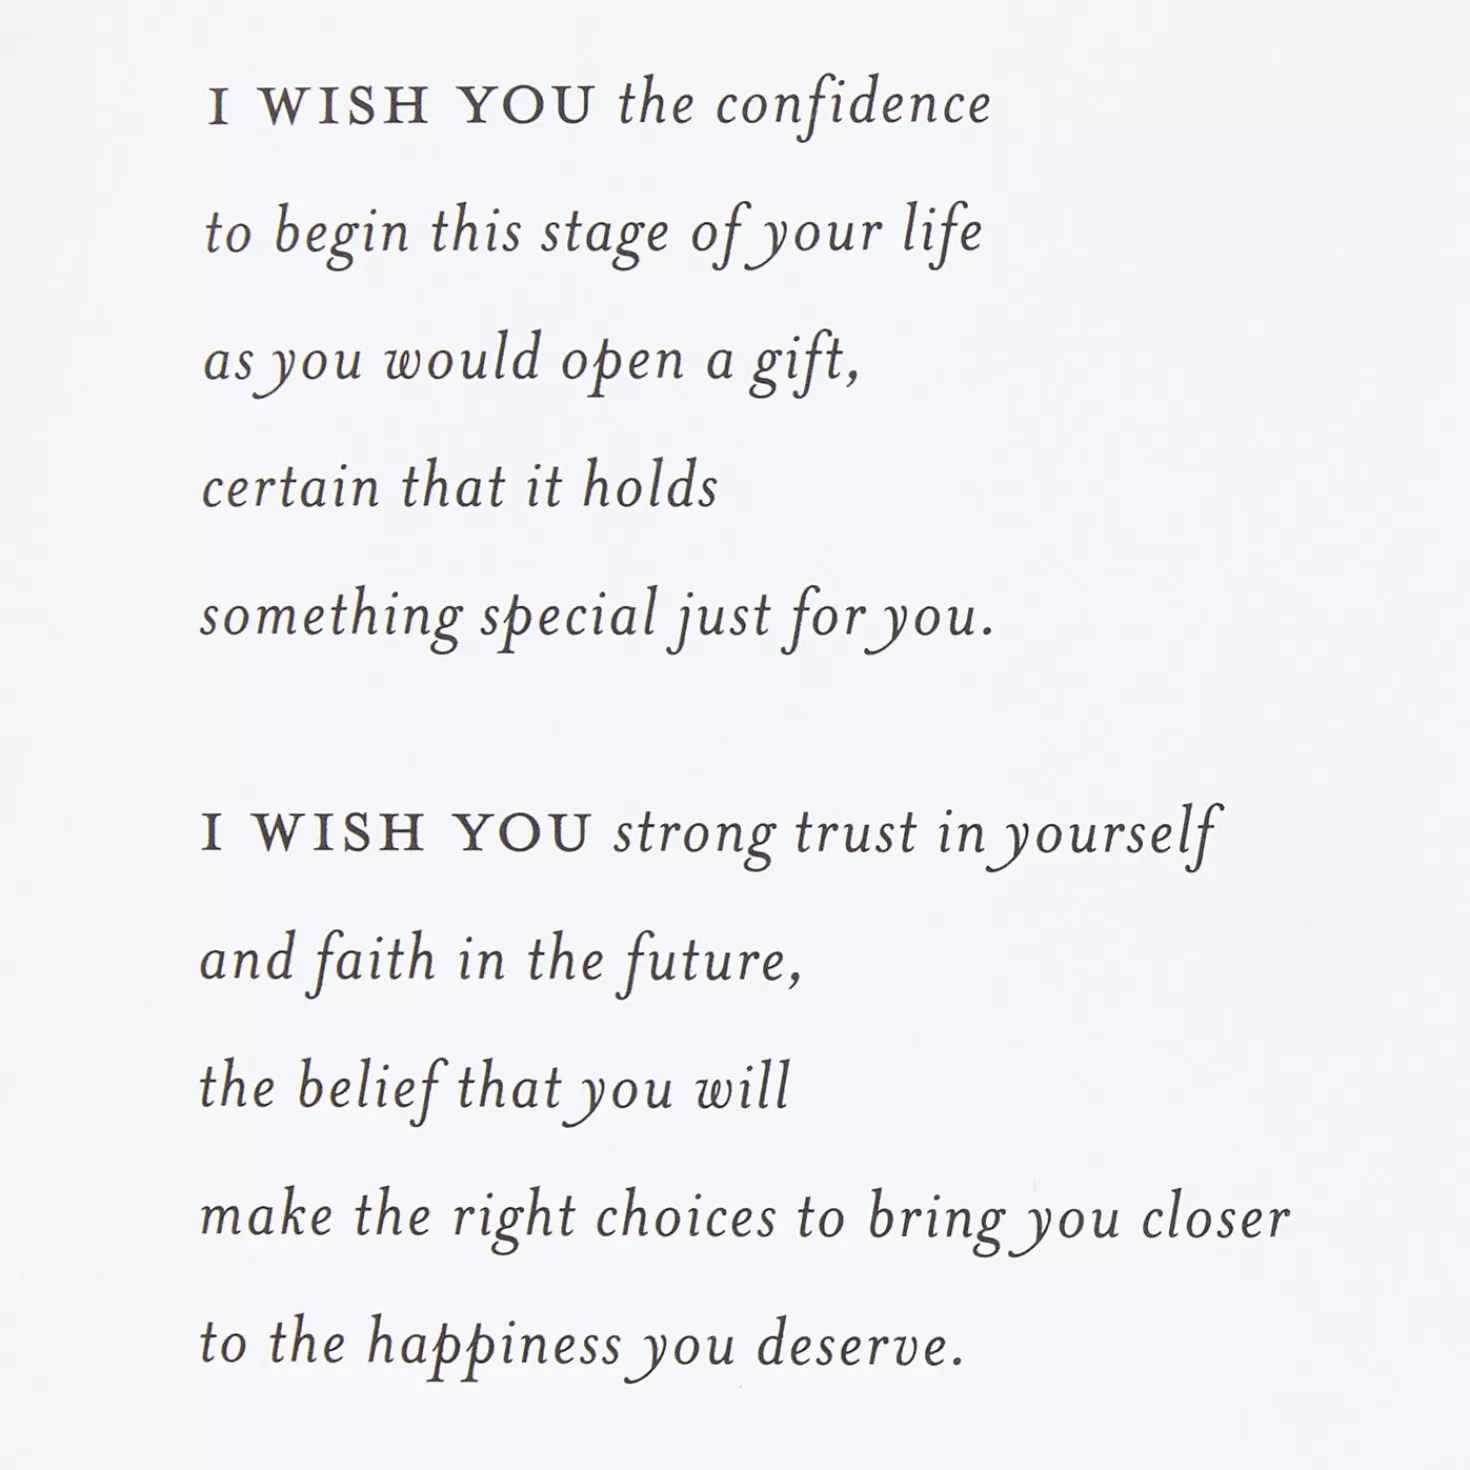 I WISH YOU the confidence
to begin this stage of your life
as you would open a gift,
certain that it holds
something special just for you.
I WISH YOU strong trust in yourself
and faith in the future,
the belief that you will
make the right choices to bring you closer
to the happiness you deserve.